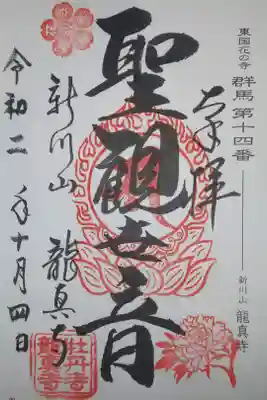 東国花の寺 群馬 第十四番 新川山 龍真寺
奉拝
聖観世音
新川山 龍真寺
令和二年十月四日